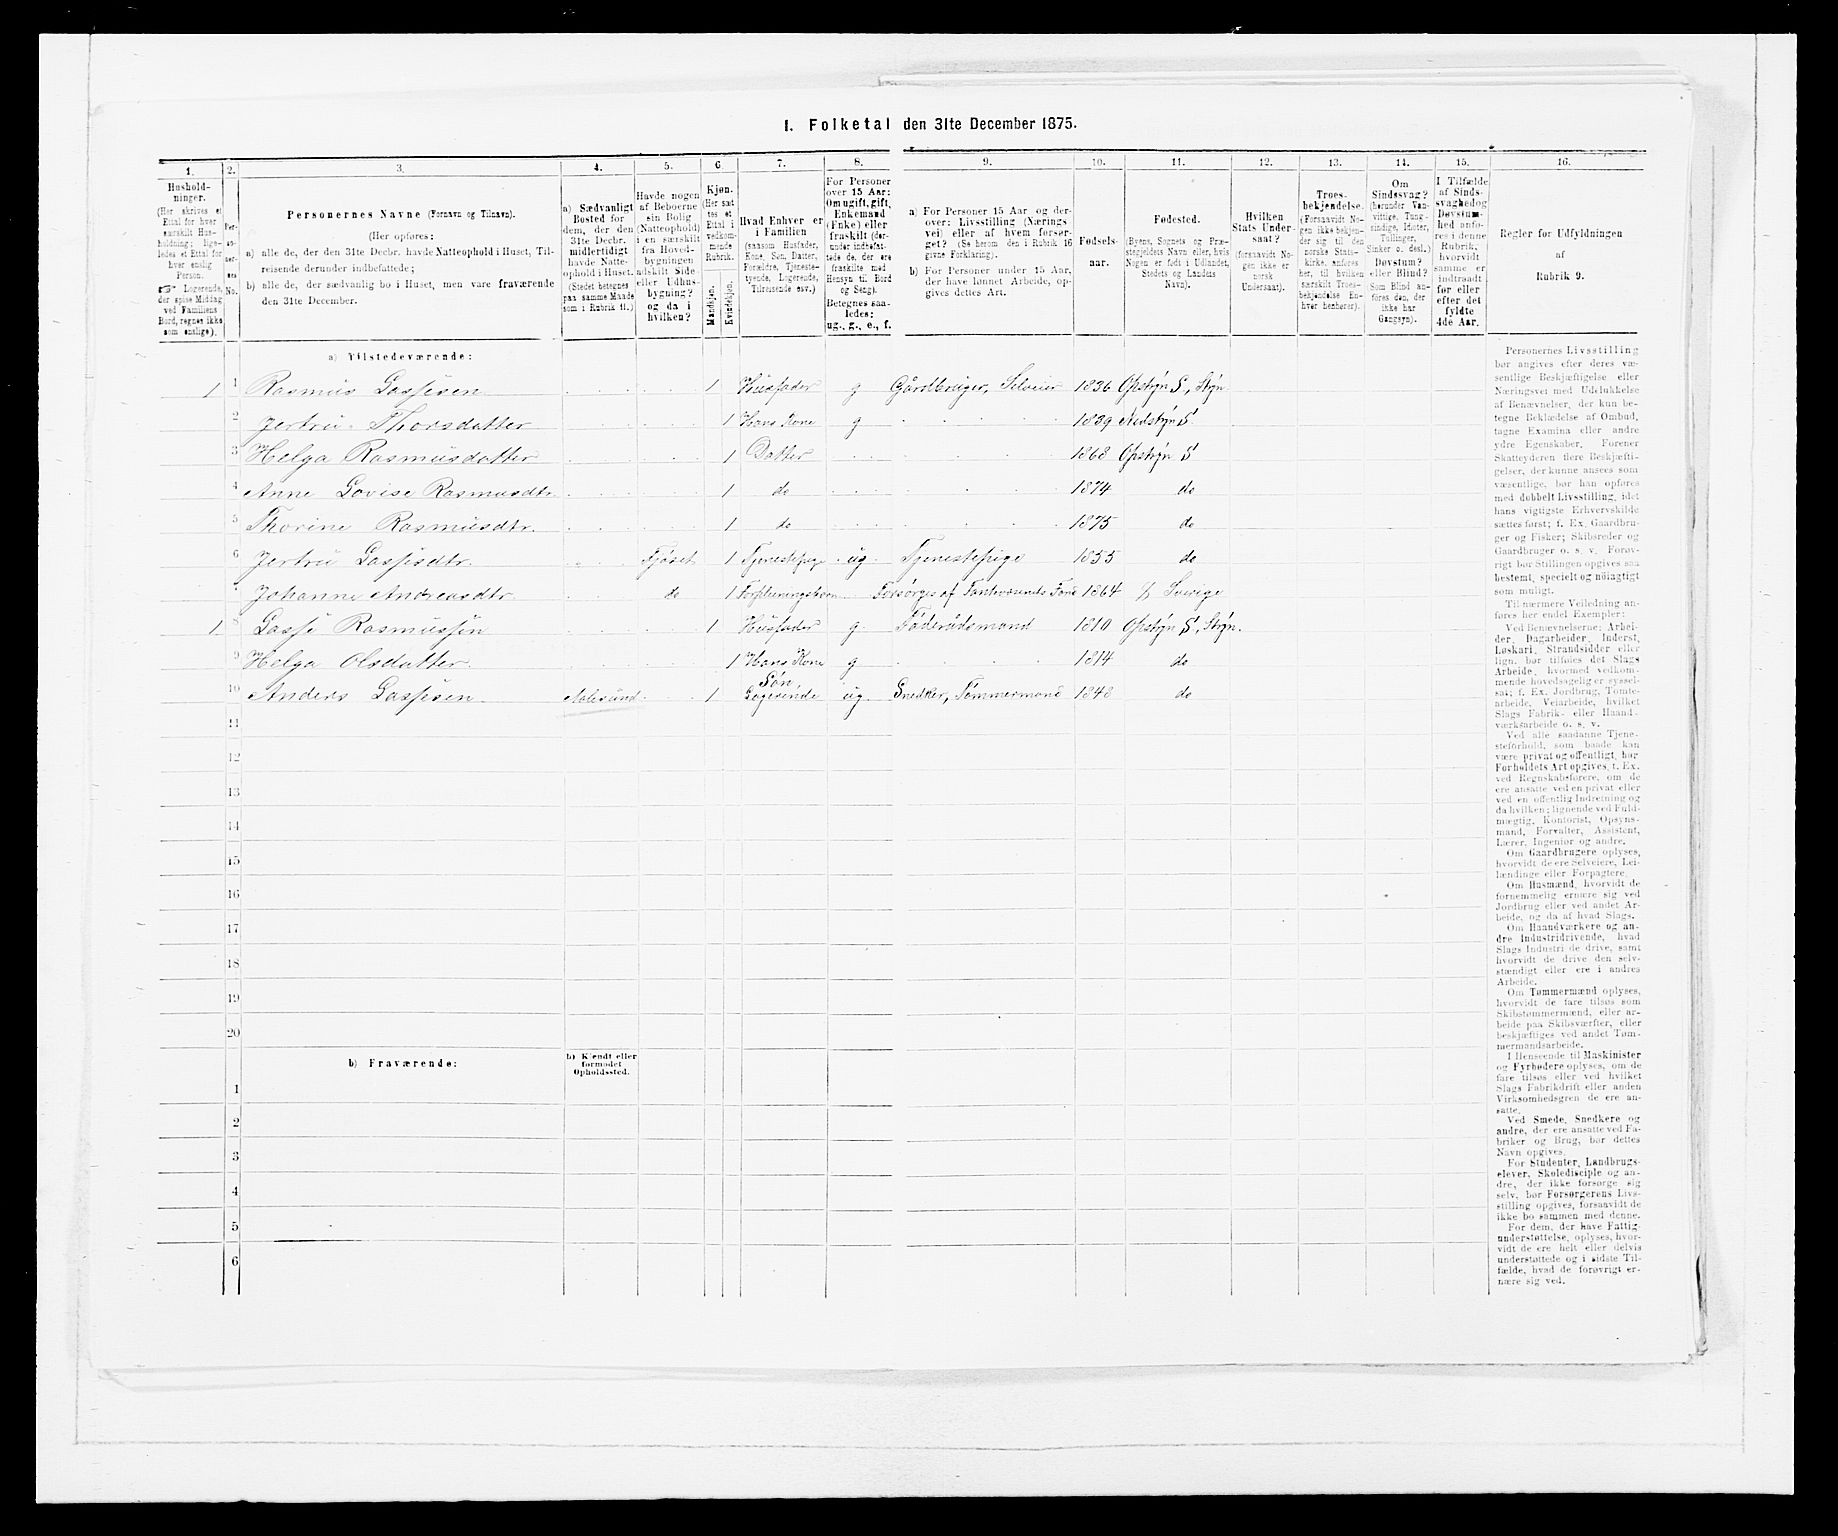 I. Folketal den 31te December 1875.
1. 2. 3. 4. 5. 6. 7. 8. 9. 10. 11. 12. 13. 14. 15. 16.
Husholdninger.
(Her skrives et Ettal for hver særskilt Husholdning; ligeledes et Ettal for hver enslig Person.
☞ Logerende, der spise Middag ved Familiens Bord, regnes ikke som enslige).
Personernes No.
Personernes Navne (Fornavn og Tilnavn).
(Her opføres:
a) alle de, der den 31te Decbr. havde Natteophold i Huset, Tilreisende derunder indbefattede;
b) alle de, der sædvanlig bo i Huset, men vare fraværende den 31te December.
a) Sædvanligt Bosted for dem, der den 31te Decbr. midlertidigt havde Natteophold i Huset. (Stedet betegnes paa samme Maade som i Rubrik 11.)
Havde nogen af Beboerne sin Bolig (Natteophold) i en særskilt fra Hovedbygningen adskilt Side- eller Udhusbygning? og da i hvilken?
Kjøn. (Her sættes et Ettal i vedkommende Rubrik.
Mandkjøn. Kvindekjøn.
Hvad Enhver er i Familien
(saasom Husfader, Kone, Søn, Datter, Forældre, Tjenestetyende, Logerende, Tilreisende osv.)
For Personer over 15 Aar: Om ugift, gift, Enkemand (Enke) eller fraskilt (derunder indbefattede de, der ere fraskilte med Hensyn til Bord og Seng). Betegnes saaledes: ug., g., e., f.
a) For Personer 15 Aar og derover: Livsstilling (Næringsvei) eller af hvem forsørget? (Se herom den i Rubrik 16 givne Forklaring).
b) For Personer under 15 Aar, der have lønnet Arbeide, opgives dettes Art.
Fødselsaar.
Fødested.
(Byens, Sognets og Præstegjeldets Navn eller, hvis Nogen er født i Udlandet, Stedets og Landets Navn).
Hvilken Stats Undersaat?
(forsaavidt Nogen ikke er norsk Undersaat).
Troesbekjendelse.
(Forsaavidt Nogen ikke bekjender sig til den norske Statskirke, anføres her, til hvilken særskilt Troesbekjendelse Enhver henhører).
Om Sindssvag? (herunder Vanvittige, Tungsindige, Idioter, Tullinger, Sinker o. desl.) Døvstum? eller Blind? (Som Blind anføres den, der ikke har Gangsyn).
I Tilfælde af Sindssvaghed og Døvstumhed anføres i denne Rubrik, hvorvidt samme er indtraadt før eller efter det fyldte 4de Aar.
Regler for Udfyldningen
af
Rubrik 9.
a) Tilstedeværende:
1 1 Rasmus Lassesen 1 Husfader g Gårdbruger, Selveier 1836 Opstryn S, Stryn
2 Jertru Thorsdatter 1 Hans Kone g 1839 Nedstryn S
3 Helga Rasmusdatter 1 Datter 1868 Opstryn S
4 Anne Lovise Rasmusdtr. 1 do 1874 do
5 Thorine Rasmusdtr. 1 do 1875 do
6 Jertru Lassesdtr. Fjöset 1 Tjenestepige ug Tjenestepige 1855 do
7 Johanne Andreasdtr. do 1 Forsörges af Fantevæsnets Fond 1864 Sverige
1 8 Lasse Rasmussen 1 Husfader g Föderådsmand 1810 Opstryn S, Stryn.
9 Helga Olsdatter 1 Hans Kone g 1814 do
10 Anders Lassesen Aalesund 1 Sön Logerende ug Snedker, Tømmermand 1848 do
11
12
13
14
15
16
17
18
19
20
b) Fraværende: b) Kjendt eller formodet Opholdssted.
1
2
3
4
5
6
Personernes Livsstilling
bør angives efter deres væ-
sentlige Beskjæftigelse eller
Næringsvei med Udelukkelse
af Benævnelser, der kun be-
tegne Beklædelse af Ombud,
tagne Examina eller andre
ydre Egenskaber. Forener
Skatteyderen flere Beskjæfti-
gelser, der kunne ansees som
væsentlige, bør han opføres
med dobbelt Livsstilling, idet
hans vigtigste Erhvervskilde
sættes først; f. Ex. Gaardbru-
ger og Fisker; Skibsreder og
Gaardbruger o. s. v. Forøv-
rigt bør Stillingen opgives saa
bestemt, specielt og nøiagtigt
som muligt.
Til nærmere Veiledning an-
føres her endel Exempler:
Ved Benævnelserne: Arbei-
der, Dagarbeider, Inderst,
Løskarl, Strandsidder eller
lign. bør tilføies det Slags
Arbeide, hvormed vedkom-
mende hovedsagelig er syssel-
sat; f. Ex. Jordbrug, Tomte-
arbeide, Veiarbeide, hvilket
Slags Fabrik- eller Haand-
værksarbeide o. s. v.
Ved alle saadanne Tjene-
steforhold, som baade kan
være privat og offentligt, bør
Forholdets Art opgives, t. Ex.
ved Regnskabsførere, om de
ere ansatte ved en privat eller
ved en offentlig Indretning og
da hvilken; lignende ved Fuld-
mægtig, Kontorist, Opsyns-
mand, Forvalter, Assistent,
Lærer, Ingeniør og andre.
Om Gaardbrugere oplyses,
hvorvidt de ere Selveiere, Lei-
lændinge eller Forpagtere.
Om Husmænd, hvorvidt de
fornemmelig ernære sig ved
Jordbrug eller ved andet Ar-
beide, og da af hvad Slags.
Om Haandværkere og an-
dre Industridrivende, hvad
Slags Industri de drive, samt
hvorvidt de drive den selv-
stændigt eller ere i andres
Arbeide.
Om Tømmermænd oplyses,
hvorvidt de fare tilsøs som
Skibstømmermænd, eller ar-
beide paa Skibsværfter, eller
beskjæftiges ved andet Tøm-
mermandsarbeide.
I Henseende til Maskinister
og Fyrbødere oplyses, om de
fare tilsøs eller ved hvilket
Slags Fabrikdrift eller anden
Virksomhedsgren de ere an-
satte.
Ved Smede, Snedkere og
andre, der ere ansatte ved Fa-
briker og Brug, bør dettes
Navn opgives.
For Studenter, Landbrugs-
elever, Skoledisciple og an-
dre, der ikke forsørge sig
selv, bør Forsørgerens Livs-
stilling opgives, forsaavidt de
ikke bo sammen med denne.
For dem, der have Fattig-
understøttelse, oplyses, hvor-
vidt de ere helt eller delvis
understøttede og i sidste Til-
fælde, hvad de forøvrigt er-
nære sig ved.